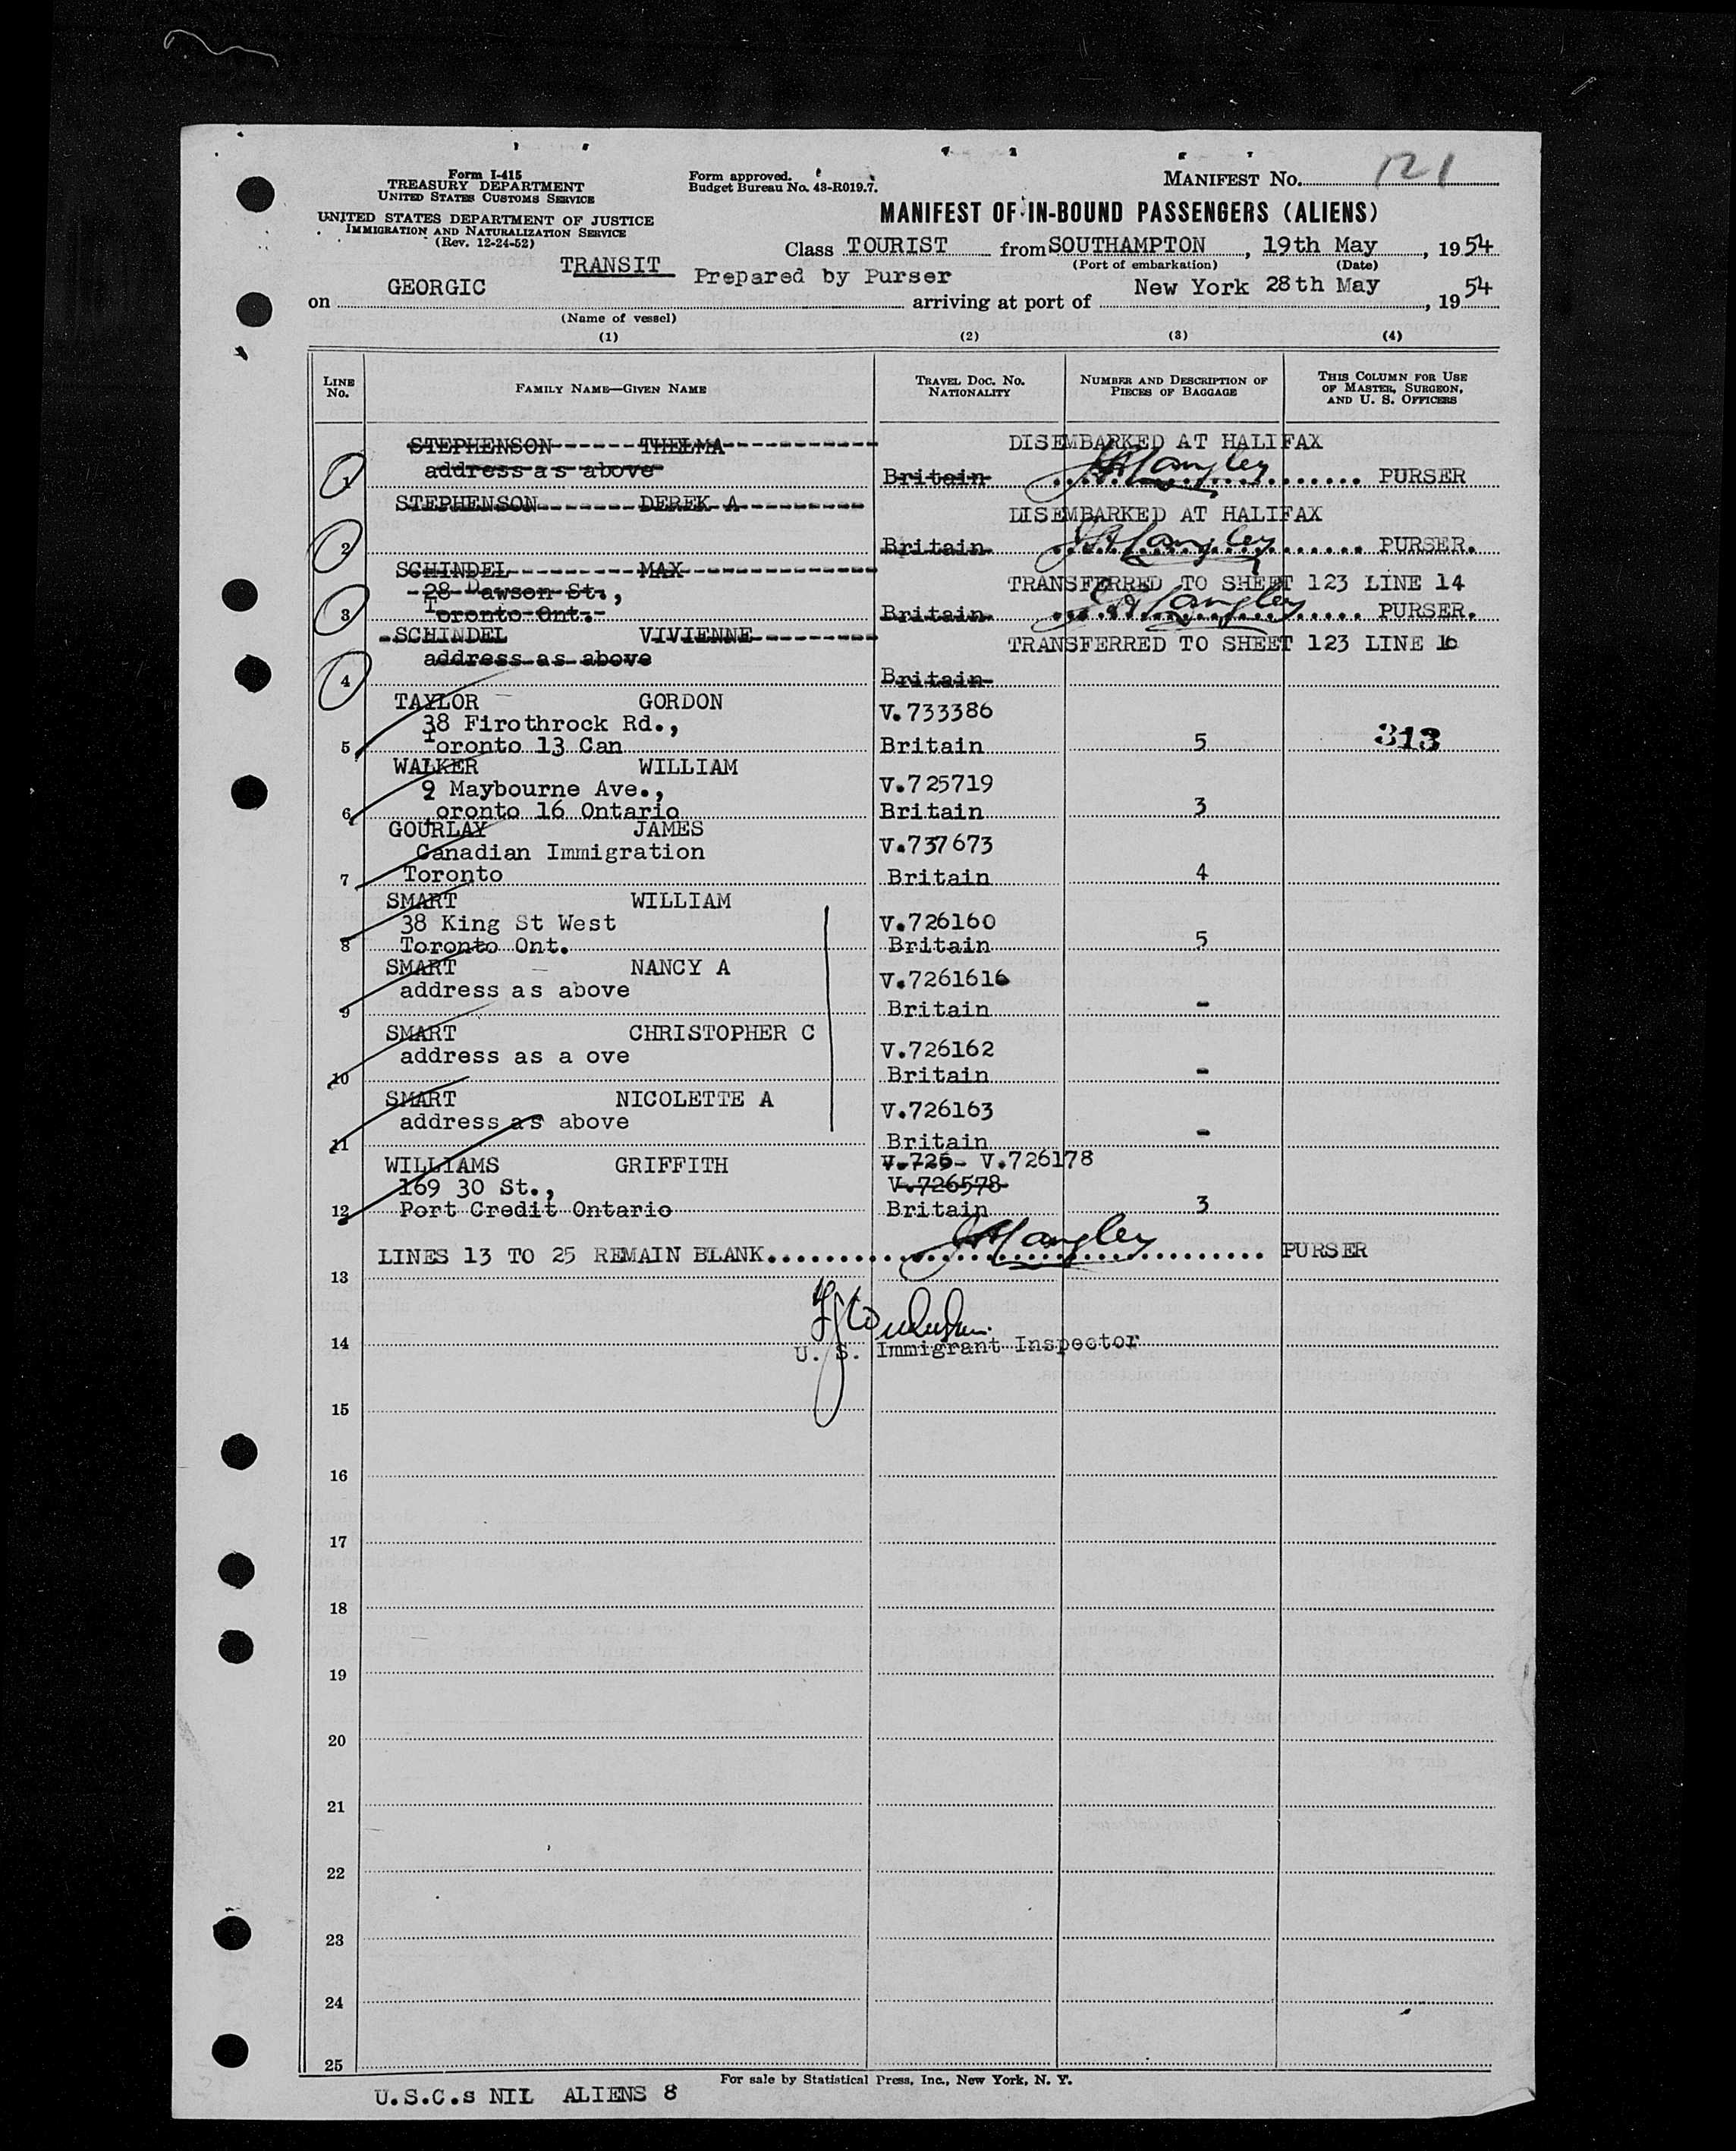 Form I-415
TREASURY DEPARTMENT
UNITED STATES CUSTOMS SERVICE
UNITED STATES DEPARTMENT OF JUSTICE
IMMIGRATION AND NATURALIZATION SERVICE
(Rev. 12-24-52)
Form approved.
Budget Bureau No. 43-R019.7.
MANIFEST No. 121
MANIFEST OF IN-BOUND PASSENGERS (ALIENS)
Class TOURIST from SOUTHAMPTON, 19th May, 1954
(Port of embarkation) (Date)
TRANSIT Prepared by Purser
on GEORGIC arriving at port of New York 28th May, 1954
(Name of vessel)
(1) (2) (3) (4)
LINE No. FAMILY NAME—GIVEN NAME TRAVEL DOC. No. NATIONALITY NUMBER AND DESCRIPTION OF PIECES OF BAGGAGE THIS COLUMN FOR USE OF MASTER, SURGEON, AND U. S. OFFICERS
STEPHENSON THELMA DISEMBARKED AT HALIFAX
address as above
1 Britain PURSER
STEPHENSON DEREK A
DISEMBARKED AT HALIFAX
2 Britain PURSER.
SCHINDEL MAX
28 Dawson St., TRANSFERRED TO SHEET 123 LINE 14
3 Toronto Ont. Britain PURSER.
SCHINDEL VIVIENNE TRANSFERRED TO SHEET 123 LINE 16
address as above
4 Britain
TAYLOR GORDON V.733386
38 Firothrock Rd.,
5 Toronto 13 Can Britain 5 313
WALKER WILLIAM V.725719
9 Maybourne Ave.,
6 Toronto 16 Ontario Britain 3
GOURLAY JAMES V.737673
Canadian Immigration
7 Toronto Britain 4
SMART WILLIAM
38 King St West V.726160
8 Toronto Ont. Britain 5
SMART NANCY A V.7261616
address as above
9 Britain -
SMART CHRISTOPHER C V.726162
address as a ove
10 Britain -
SMART NICOLETTE A V.726163
address as above
11 Britain -
WILLIAMS GRIFFITH V.726- V.726178
169 30 St., V.726578
12 Port Credit Ontario Britain 3
LINES 13 TO 25 REMAIN BLANK JHLangley PURSER
13
14 U. S. Immigrant Inspector
15
16
17
18
19
20
21
22
23
24
25
For sale by Statistical Press, Inc., New York, N. Y.
U.S.C.s NIL ALIENS 8